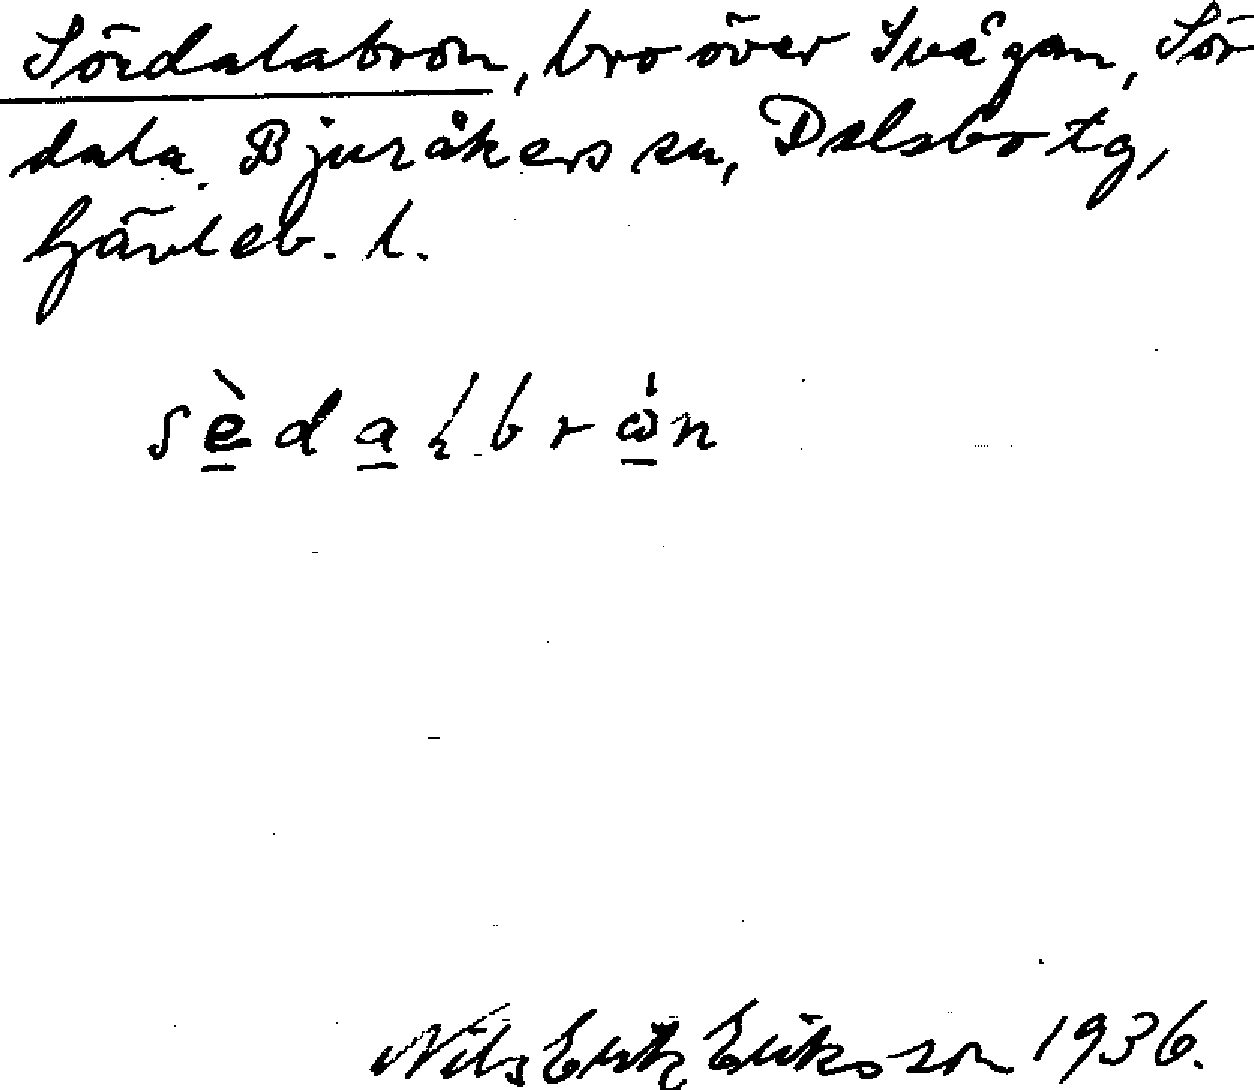 Sördalabron, bro över Svågan, Sör
dala. Bjuråkers sn, Delsbo tg,
Gävleb. l.
sèdalbrωn
Nils Erik Eriksson 1936.